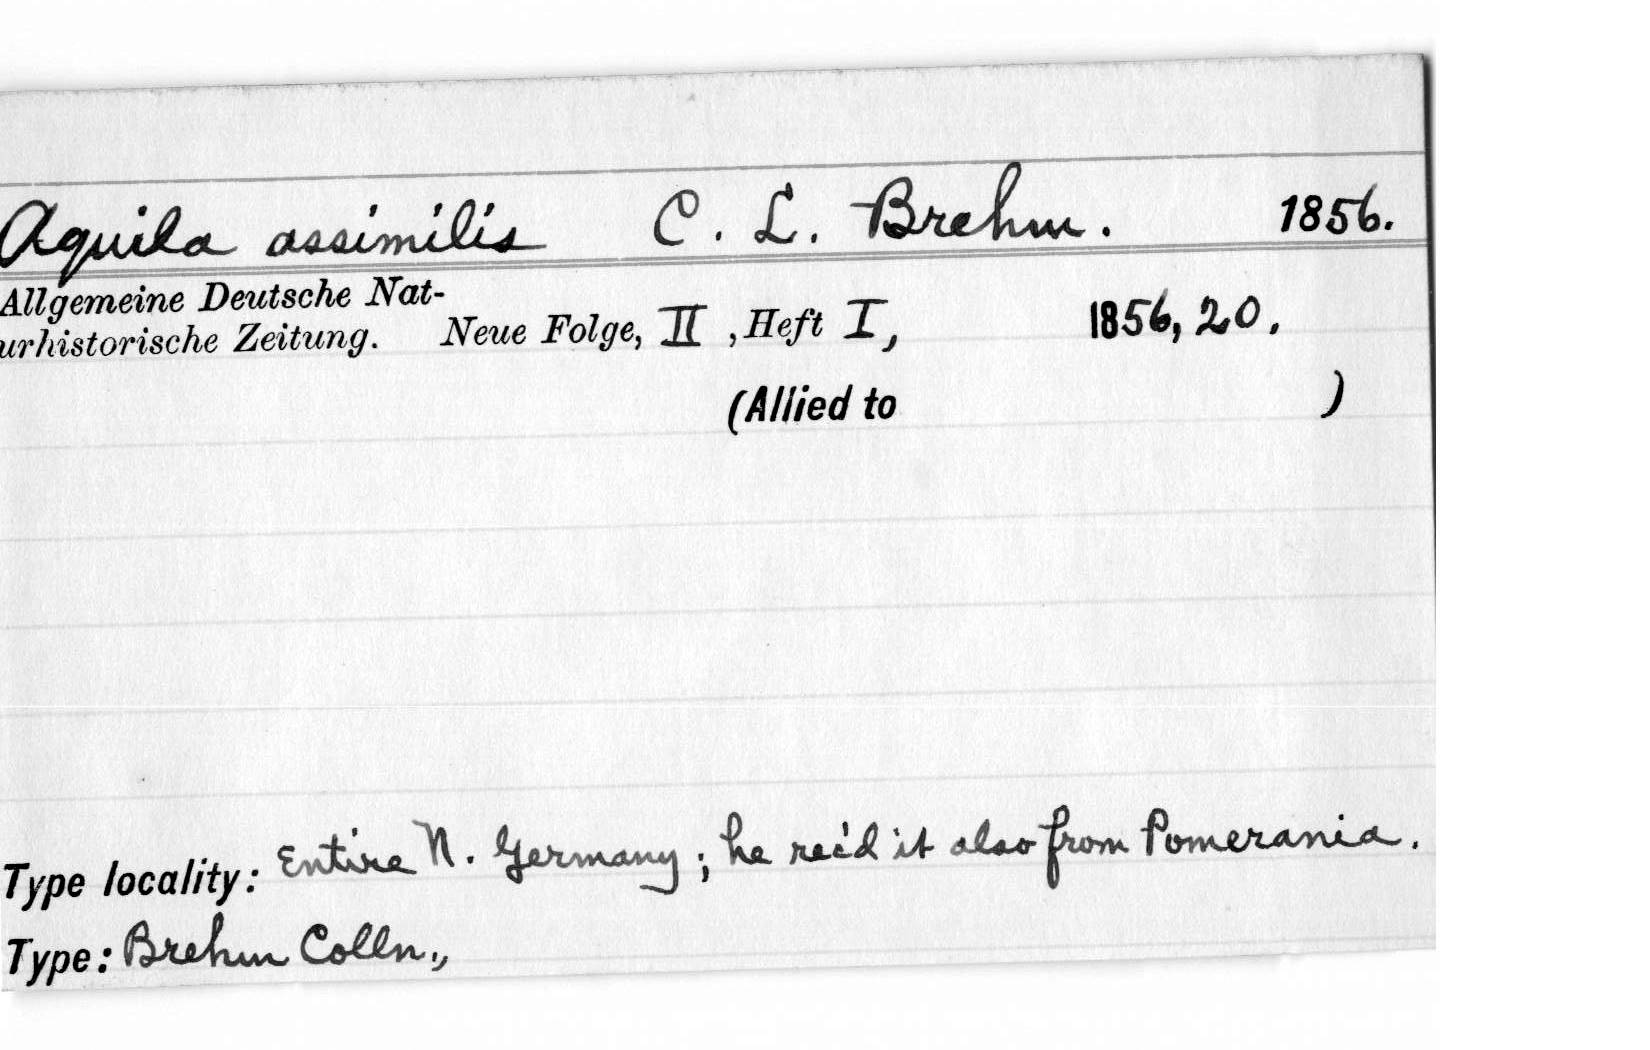 Aquila assimilis C. L. Brehm. 1856.
Allgemeine Deutsche Nat-
urhistorische Zeitung. Neue Folge, II, Heft I, 1856, 20.
(Allied to )
Type locality: Entire N. Germany; he rec'd it also from Pomerania.
Type: Brehm Colln.,